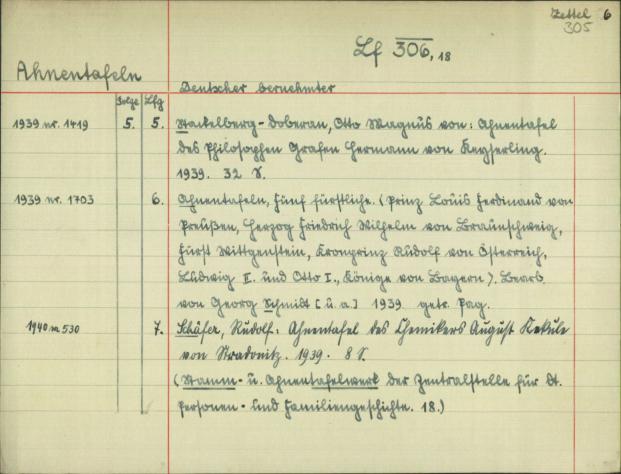 Zettel 6
305
Lf 306,18
Ahnentafeln
Deutscher beruehmter
Folge Lfg
1939 nr. 1419 5. 5. Stackelberg-Doberan, Otto Magnus von: Ahnentafel
des Philosophen Grafen Hermann von Keyserling.
1939. 32 S.
1939 nr. 1703 6. Ahnentafeln, Fünf fürstliche. (Prinz Louis Ferdinand von
Preußen, Herzog Friedrich Wilhelm von Braunschweig,
Fürst Wittgenstein, Kronprinz Rudolf von Österreich,
Ludwig II. und Otto I., Könige von Bayern). Bearb.
von Georg Schmidt [u. a.] 1939 getr. Pag.
1940 nr. 530 7. Schäfer, Rudolf: Ahnentafel des Chemikers August Kekule
von Stradonitz. 1939. 8 S.
(Stamm- u. Ahnentafelwerk der Zentralstelle für Dt.
Personen- und Familiengeschichte. 18.)